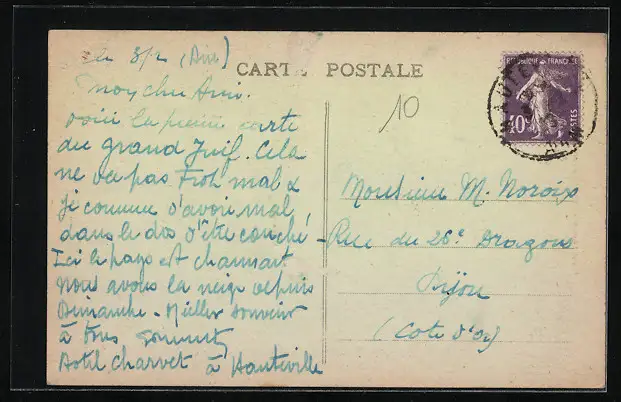 (Ain)
CARTE POSTALE
10
REPUBLIQUE FRANCAISE
40c
POSTES
Mon cher Ami.
Voici la première carte
du grand Juif. Cela
ne va pas Trop mal &
je commence d'avoir mal
dans le dos d'être couché
Ici le pays est charmant
Nous avons la neige depuis
Dimanche - Meilleur souvenir
à tous
Hotel Charvet à Hauteville
Monsieur M. Noroix
Rue du 26e Dragons
Dijon
(Cote d'Or)